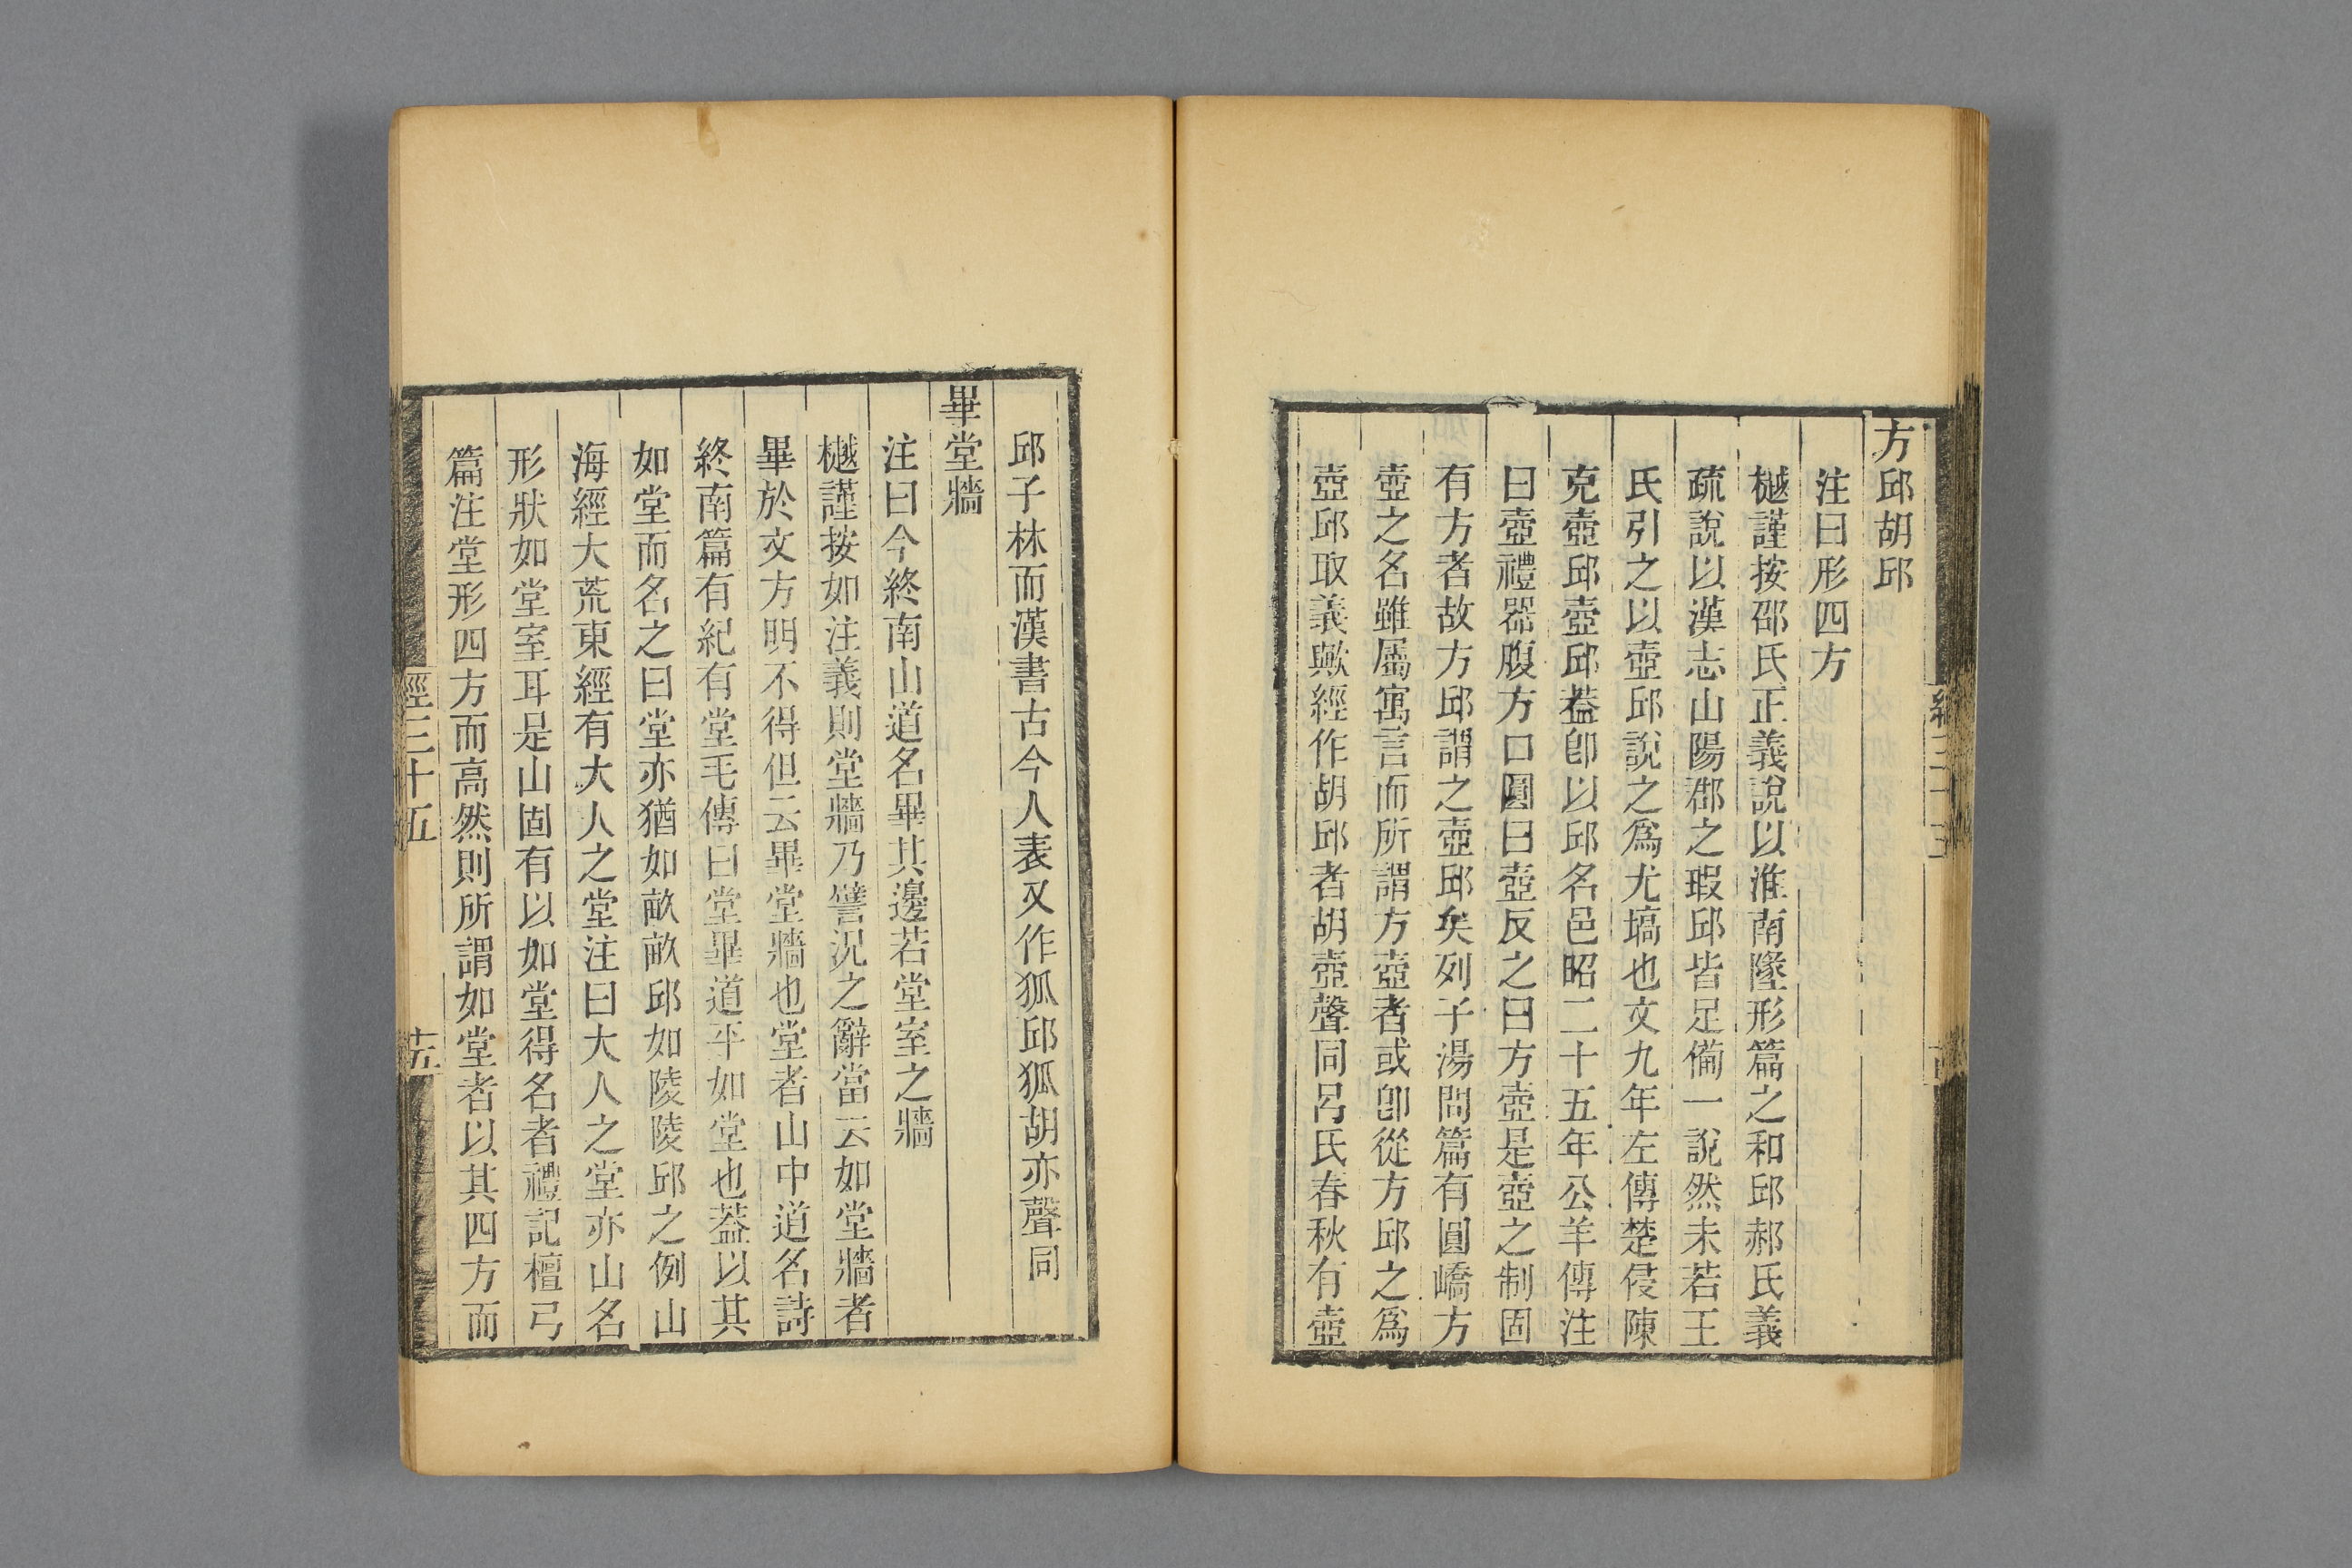 方邱胡邱
注曰形四方
樾謹按邵氏正義說以淮南墬形篇之和邱郝氏義
疏說以漢志山陽郡之瑕邱皆足備一說然未若王
氏引之以壺邱說之爲尤塙也文九年左傳楚侵陳
克壺邱壺邱葢卽以邱名邑昭二十五年公羊傳注
曰壺禮器腹方口圓曰壺反之曰方壺是壺之制固
有方者故方邱謂之壺邱矣列子湯問篇有圓嶠方
壺之名雖屬寓言而所謂方壺者或卽從方邱之爲
壺邱取義歟經作胡邱者胡壺聲同呂氏春秋有壺
邱子林而漢書古今人表又作狐邱狐胡亦聲同
畢堂牆
注曰今終南山道名畢其邊若堂室之牆
樾謹按如注義則堂牆乃譬況之辭當云如堂牆者
畢於文方明不得但云畢堂牆也堂者山中道名詩
終南篇有紀有堂毛傳曰堂畢道平如堂也葢以其
如堂而名之曰堂亦猶如畝畝邱如陵陵邱之例山
海經大荒東經有大人之堂注曰大人之堂亦山名
形狀如堂室耳是山固有以如堂得名者禮記檀弓
篇注堂形四方而高然則所謂如堂者以其四方而
經三十五
十五